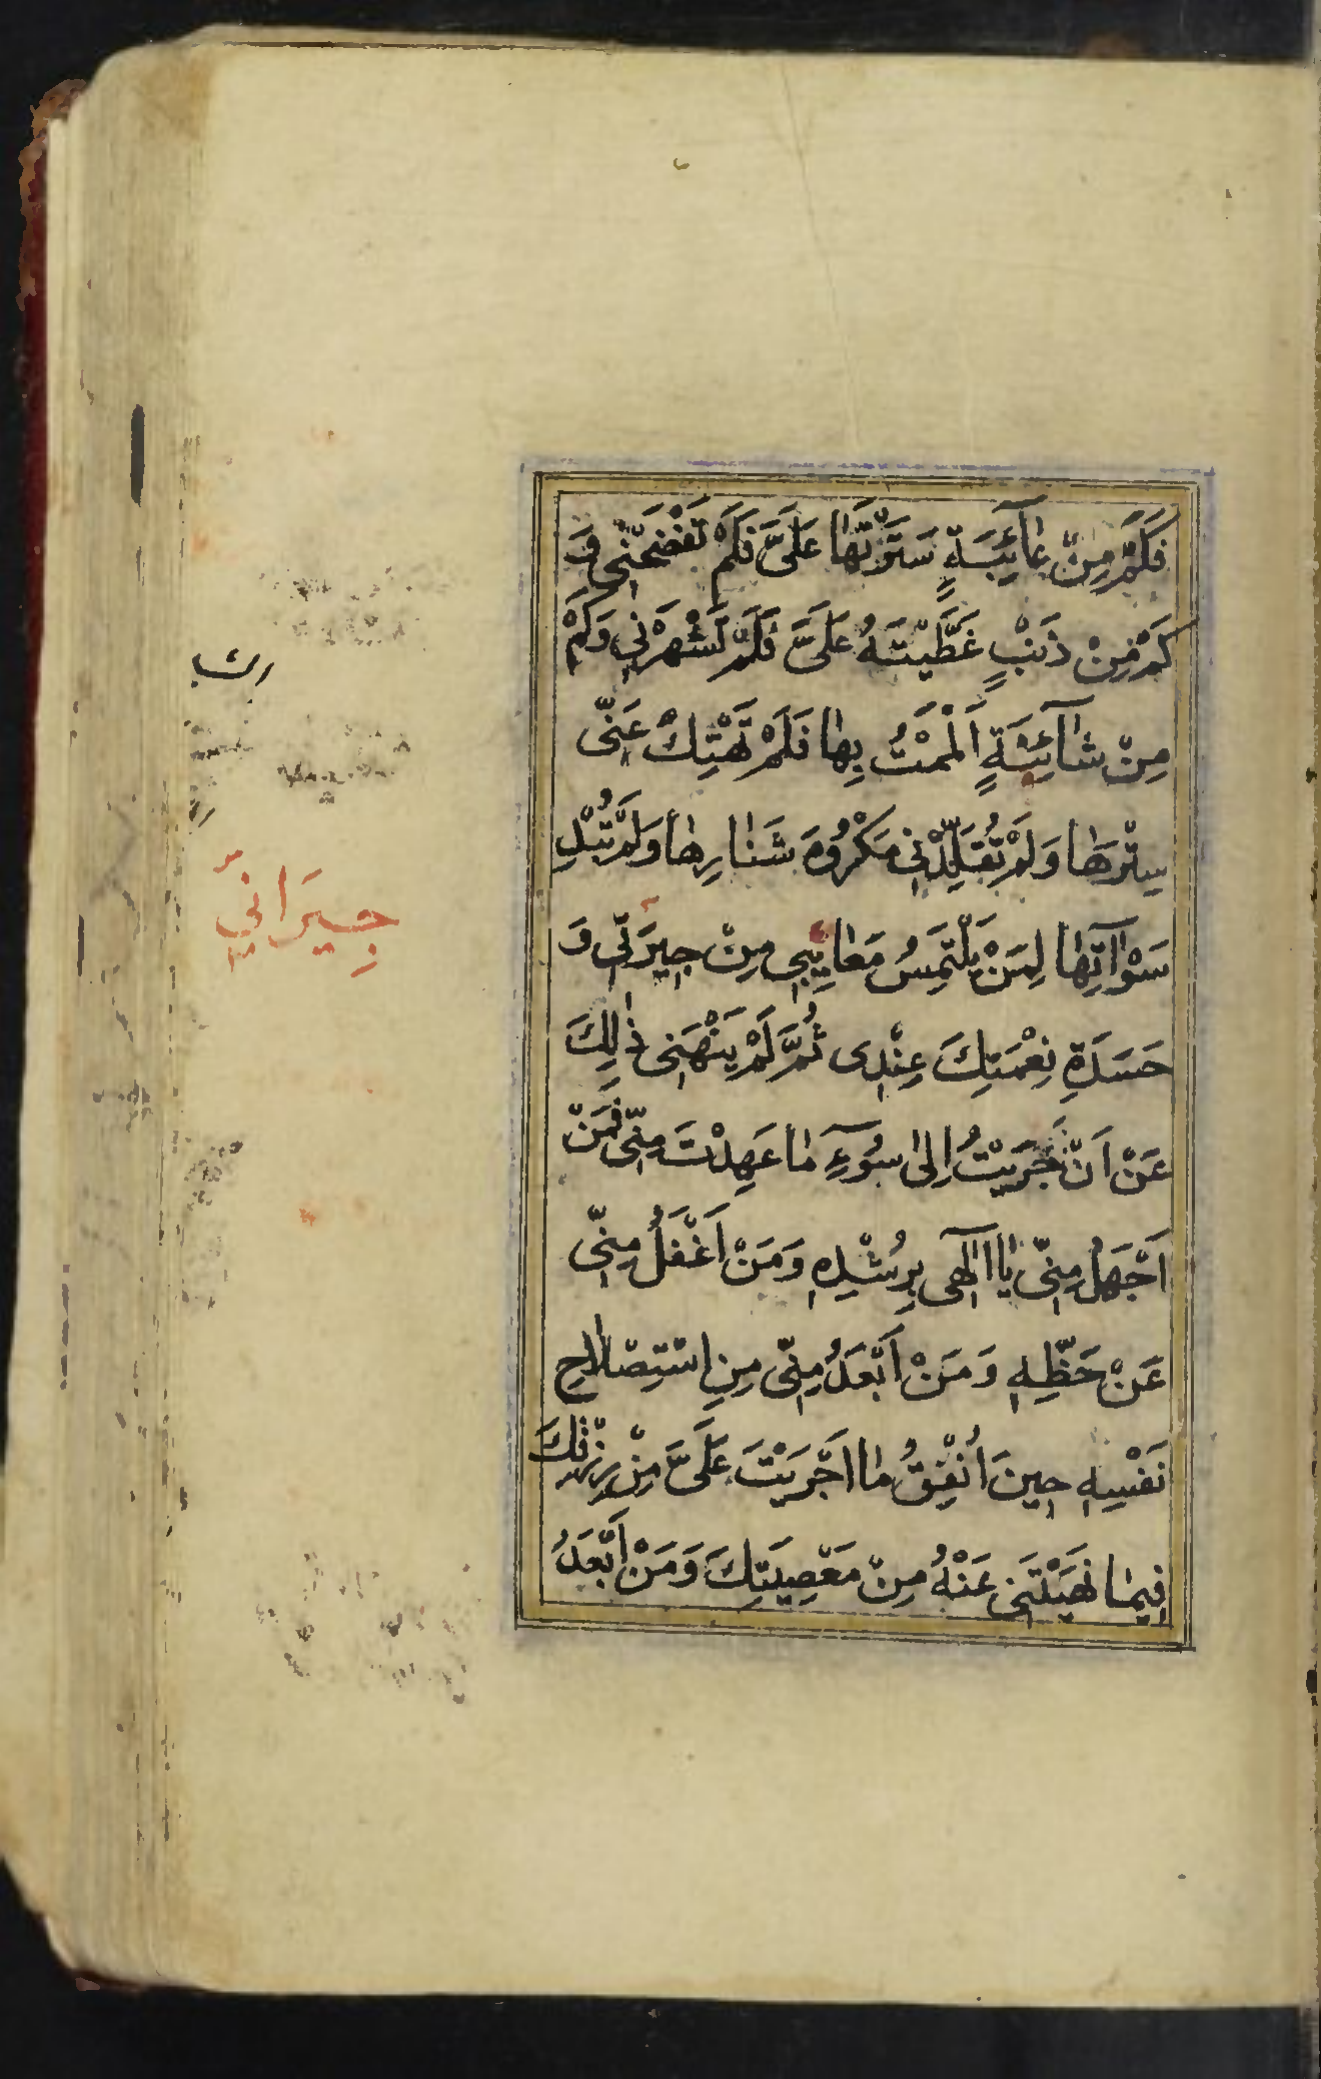 فَلَكَمْ مِنْ عٰآئِبَةٍ سَتَرْتَهٰا عَلَىَّ فَلَمْ تَفْضَحْنِى وَ
كَمْ مِنْ ذَنْبٍ غَطَّيْتَهُ عَلَىَّ فَلَمْ تَشْهَرْنِى وَكَمْ
مِنْ شٰآئِبَةٍ اَلْمَمْتُ بِهٰا فَلَمْ تَهْتِكْ عَنّى
سِتْرَهٰا وَلَمْ تُقَلِّدْنِى مَكْرُوهَ شَنٰارِهٰا وَلَمْ تُبْدِ
سَوْاٰتِهٰا لِمَنْ يَلْتَمِسُ مَعٰايِبِى مِنْ جِيرَتِى وَ
حَسَدَةِ نِعْمَتِكَ عِنْدِى ثُمَّ لَمْ يَنْهَنِى ذٰلِكَ
عَنْ اَنْ جَرَيْتُ اِلىٰ سُوٓءِ مٰا عَهِدْتَ مِنّى فَمَنْ
اَجْهَلُ مِنّى يٰا اِلٰهِى بِرُشْدِهِ وَمَنْ اَغْفَلُ مِنّى
عَنْ حَظِّهِ وَمَنْ اَبْعَدُ مِنّى مِنِ اسْتِصْلٰاحِ
نَفْسِهِ حِينَ اُنْفِقُ مٰا اَجْرَيْتَ عَلَىَّ مِنْ رِزْقِكَ
فِيمٰا نَهَيْتَنِى عَنْهُ مِنْ مَعْصِيَتِكَ وَمَنْ اَبْعَدُ
جِيرَانِي